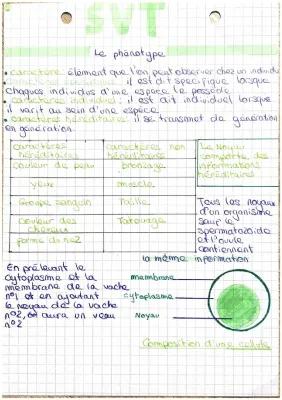 SVT
Le phénotype
• caractère: élément que l'on peut observer chez un individu
: il est dit specifique lorsque
chaques individus d'une espece le possède
• caractères individuel: il est dit individuel lorsque
il varit au sein d'une espèce.
• caractères héréditaires: il se transmet de génération
en génération.
caractères héréditaires
caractères non héréditaires
Le Noyau comporte des informations héréditaires
couleur de peau
bronzage
yeux
muscle
Groupe sanguin
Taille
couleur des cheveux
Tatouage
forme du nez
Tous les noyaux
d'un organisme
sauf le
spermatozoide
et l'ovule
contiennent
la même information
En prélevant le
cytoplasme et la
membrane de la vache
n°1 et en ajoutant
le noyau de la vache
n°2, on aura un veau
n°2
membrane
cytoplasme
Noyau
Composition d'une cellule